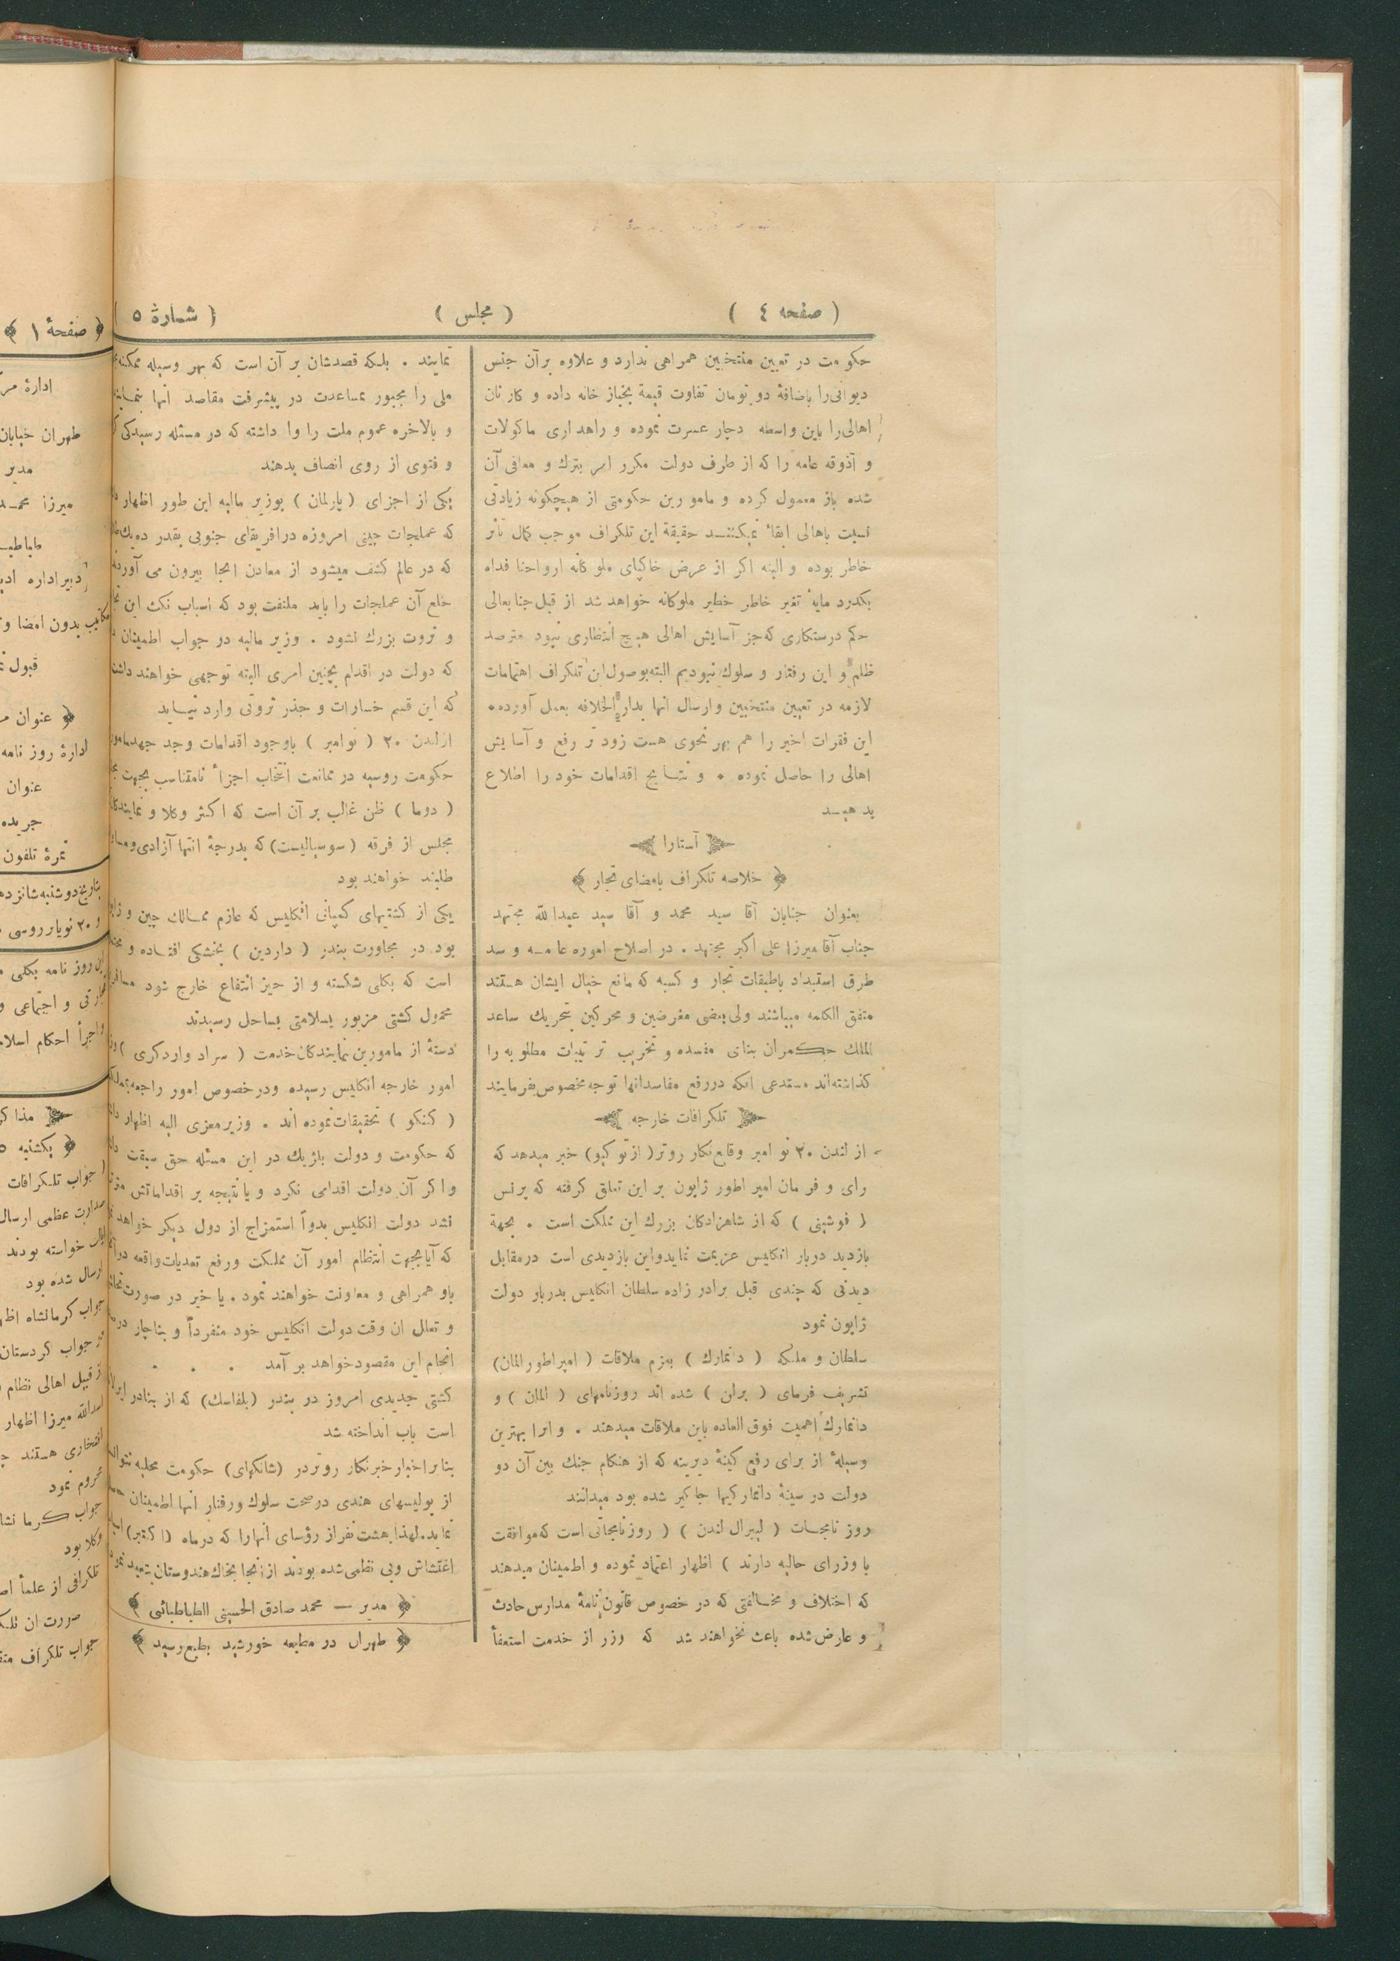 ( صفحه ٤ )
( مجلس )
( شمارهٔ ٥
حكومت در تعیین منتخبین همراهی ندارد و علاوه برآن جنس
دیوانی‌را باضافهٔ دو تومان تفاوت قیمة بخباز خانه داده و كار نان
اهالی‌را باین واسطه دچار عسرت نموده و راهداری ماكولات
و آذوقه عامه را كه از طرف دولت مكرر امر بترك و معافی آن
شده باز معمول كرده و مامورین حكومتی از هیچكونه زیادتی
نسبت باهالی ابقاء نمیكنند حقیقة این تلكراف موجب كمال تأثر
خاطر بوده و البته اكر از عرض خاكپای ملوكانه ارواحنا فداه
بكذرد مایهٔ تغیر خاطر خطیر ملوكانه خواهد شد از قبل جنابعالی
حكم درستكاری كه‌جز آسایش اهالی هیچ انتظاری نبود مترصد
ظلم و این رفتار و سلوك نبودیم البته‌بوصول‌این تلكراف اهتمامات
لازمه در تعیین منتخبین وارسال آنها بدار الخلافه بعمل آورده٠
این فقرات اخیر را هم بهر نحوی هست زود تر رفع و آسایش
اهالی را حاصل نموده ٠ و نتایج اقدامات خود را اطلاع
بدهید
آستارا
﴿ خلاصه تلكراف بامضای تجار ﴾
بعنوان جنابان آقا سید محمد و آقا سید عبدالله مجتهد
جناب آقا میرزا علی اكبر مجتهد . در اصلاح اموره عامه و سد
طرق استبداد باطبقات تجار و كسبه كه مانع خیال ایشان هستند
متفق الكلمه میباشند ولی‌بعضی مغرضین و محركین بتحریك ساعد
الملك حكمران بنای مفسده و تخریب ترتیبات مطلوبه را
كذاشته‌اند مستدعی آنكه دررفع مفاسدآنها توجه مخصوص‌بفرمایند
تلكرافات خارجه
از لندن ٢٠ نوامبر وقایع‌نكار روتر( ازتوكیو) خبر میدهد كه
رای و فرمان امپراطور ژاپون بر این تعلق كرفته كه پرنس
( فوشینی ) كه از شاهزادكان بزرك این مملكت است . بجهة
بازدید دربار انكلیس عزیمت نماید‌واین بازدیدی است درمقابل
دیدنی كه چندی قبل برادر زاده سلطان انكلیس بدربار دولت
ژاپون نمود
سلطان و ملكه ( دانمارك ) بعزم ملاقات ( امپراطورالمان)
تشریف فرمای ( برلن ) شده اند روزنامهای ( المان ) و
دانمارك اهمیت فوق العاده باین ملاقات میدهند . و آنرا بهترین
وسیلهٔ از برای رفع كینهٔ دیرینه كه از هنكام جنك بین آن دو
دولت در سینهٔ دانماركیها جاكیر شده بود میدانند
روز نامجات ( لیبرال لندن ) ( روزنامجاتی است كه‌موافقت
با وزرای حالیه دارند ) اظهار اعتماد نموده و اطمینان میدهند
كه اختلاف و مخالفتی كه در خصوص قانون‌نامهٔ مدارس حادث
و عارض شده باعث نخواهند شد كه وزر از خدمت استعفأ
نمایند . بلكه قصدشان بر آن است كه بهر وسیله ممكنه
ملی را مجبور بمساعدت در پیشرفت مقاصد آنها بنمایند
و بالاخره عموم ملت را وا داشته كه در مسئله رسیدكی
و فتوی از روی انصاف بدهند
یكی از اجزای ( پارلمان ) بوزیر مالیه این طور اظهار
كه عملجات چینی امروزه درافریقای جنوبی بقدر ده‌یك
كه در عالم كشف میشود از معادن آنجا بیرون می آورند
خلع آن عملجات را باید ملتفت بود كه اسباب نكث این
و ثروت بزرك نشود . وزیر مالیه در جواب اطمینان
كه دولت در اقدام بچنین امری البته توجهی خواهند داشت
كه این قسم خسارات و جذر ثروتی وارد نیاید
ازلندن ٢٠ ( نوامبر ) باوجود اقدامات وجد جهد
حكومت روسیه در ممانعت انتخاب اجزاء نامتناسب بجهت
( دوما ) ظن غالب بر آن است كه اكثر وكلا و نمایندكان
مجلس از فرقه ( سوسیالیست)كه بدرجهٔ انتها آزادی
طلبند خواهند بود
یكی از كشتیهای كمپانی انكلیس كه عازم ممالك چین و
بود در مجاورت بندر ( داردین ) بخشكی افتاده و
است كه بكلی شكسته و از حیز انتفاع خارج شود
محمول كشتی مزبور بسلامتی بساحل رسیدند
دستهٔ از مامورین نمایندكان خدمت ( سراد واردكری )
امور خارجه انكلیس رسیده ودرخصوص امور راجعه
( كنكو ) تحقیقات نموده اند . وزیرمعزی الیه اظهار
كه حكومت و دولت بلژیك در این مسئله حق سبقت
واكر آن دولت اقدامی نكرد و یا نتیجه بر اقداماتش
نشد دولت انكلیس بدواً استمزاج از دول دیكر خواهد
كه آیابجهت انتظام امور آن مملكت ورفع تعدیات‌واقعه
باو همراهی و معاونت خواهند نمود . یا خیر در صورت
و تعلل ان وقت دولت انكلیس خود منفرداً و بناچار
انجام این مقصودخواهد بر آمد
كشتی جدیدی امروز در بندر (بلفاسك) كه از بنادر
است باب انداخته شد
بنابراخبار خبرنكار روتردر (شانكهای) حكومت محلیه
از پولیسهای هندی درصحت سلوك ورفتار آنها اطمینان
نماید.لهذا هشت نفراز رؤسای آنهارا كه درماه (اكتبر)
اغتشاش وبی نظمی‌شده بودند ازآنجا بخاك هندوستان تبعید
﴿ مدیر — محمد صادق الحسینی الطباطبائی ﴾
﴿ طهران در مطبعه خورشید بطبع رسید ﴾
﴿ صفحهٔ ١ ﴾
طهران خیابان
مدیر
میرزا محمد
دبیر اداره
بدون امضا
﴿ عنوان
ادارهٔ روز نامه
عنوان
جریده
نمرهٔ تلفون
روز نامه بكلی
و اجتماعی
احكام
﴿ یكشنبه
جواب تلكرافات
عظمی ارسال
خواسته بودند
ارسال شده بود
جواب كرمانشاه
جواب كردستان
اهالی نظام
اسدالله میرزا اظهار
هستند
محروم نمود
جواب كرما
وكلا بود
تلكرافی از علمأ
صورت ان
جواب تلكراف